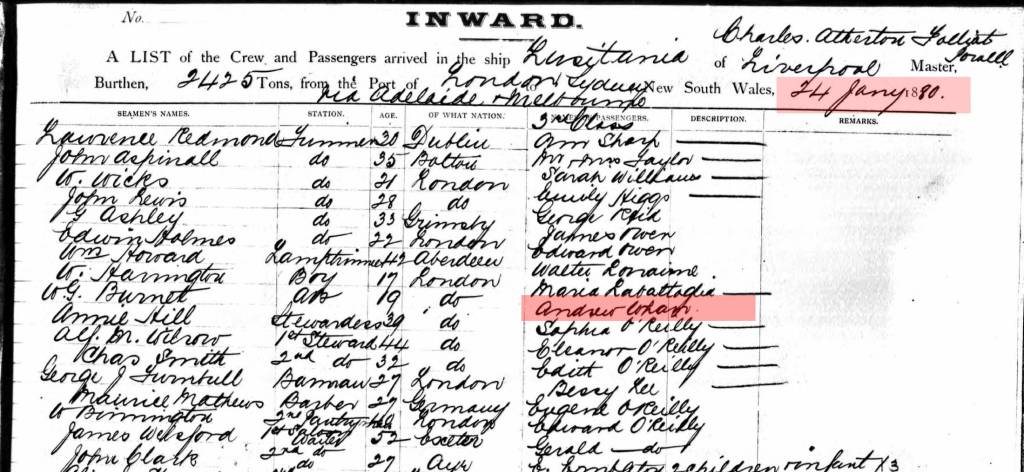 No.
INWARD.
Charles Atherton
A LIST of the Crew and Passengers arrived in the ship Lusitania of Liverpool Master,
Burthen, 2425 Tons, from the Port of London to Sydney New South Wales, 24 Jany 1880.
via Adelaide & Melbourne
SEAMEN'S NAMES. STATION. AGE. OF WHAT NATION. NAMES OF PASSENGERS. DESCRIPTION. REMARKS.
3rd Class
Lawrence Redmond 30 Dublin Wm Sharp
John Aspinall do 35 Bolton Mr & Mrs Taylor
W. Wicks do 21 London Sarah Williams
John Lewis do 28 do Emily Higgs
G Ashley do 33 Grimsby George Reid
Edwin Holmes do 22 London James Owen
Wm Howard Lamptrimmer 42 Aberdeen Edward Owen
W. Harrington Boy 17 London Walter Lorraine
W G. Burnet AB 19 do Maria Labattaglia
Annie Hill Stewardess 39 do Andrew Whan
Alf. M. 1st Steward 44 do Sophia O'Reilly
Chas Smith 2nd do 32 do Eleanor O'Reilly
George J Turnbull Barman 27 London Edith O'Reilly
Maurice Mathews Barber 27 Germany Bessy Lee
W Binnington 2nd Pantryman London Eugene O'Reilly
James Welsford 1st Saloon Waiter 52 Exeter Edward O'Reilly
John Clark 2nd do do 27 Ayr Gerald do
2 children & infant